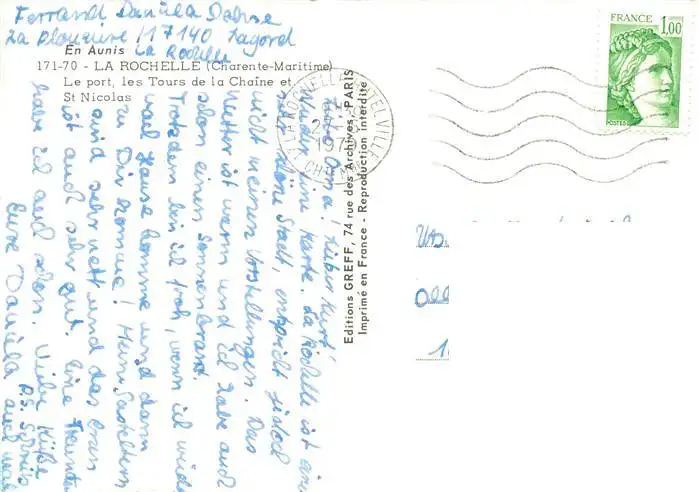 Ferrandi Daniela Dabine
La Plouzière 117140 Lagord
La Rochelle
En Aunis
171-70 - LA ROCHELLE (Charente-Maritime)
Le port, les Tours de la Chaîne et
St Nicolas
FRANCE
1,00
POSTES
LA ROCHELLE HOTEL DE VILLE
Editions GREFF, 74 rue des Archives, PARIS
Imprimé en France - Reproduction interdite
Liebe Oma! Lieber Kurt!
Wieder eine Karte. La Rochelle ist eine
sehr schöne Stadt, entspricht jedoch
nicht meinen Vorstellungen. Das
Wetter ist warm und ich habe auch
schon einen Sonnenbrand.
Trotzdem bin ich froh, wenn ich wieder
nach Hause komme und dann
zu Dir komme! Meine Gasteltern
sind sehr nett und das Essen
ist auch sehr gut. Eine
habe ich auch schon. Viele Küße
Eure Daniela
P.S.